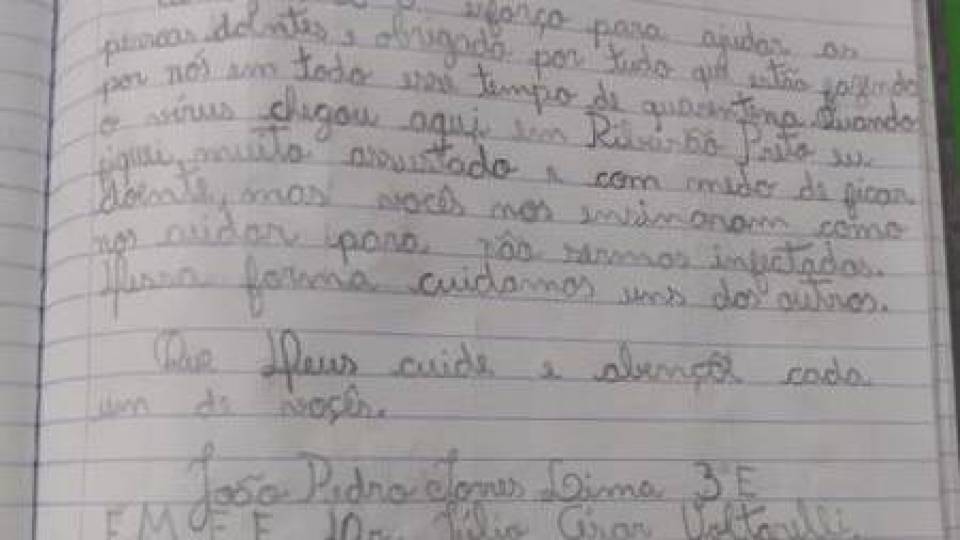 esforço para ajudar as
pessoas doentes e obrigado por tudo que estão fazendo
por nós em todo esse tempo de quarentena. Quando
o vírus chegou aqui em Ribeirão Preto eu
fiquei muito assustado e com medo de ficar
doente, mas vocês nos ensinaram como
nos cuidar para não sermos infectados.
Dessa forma cuidamos uns dos outros.
Que Deus cuide e abençõe cada
um de vocês.
João Pedro Torres Lima 3 E
E M E F Dr. Júlio César Voltarelli.